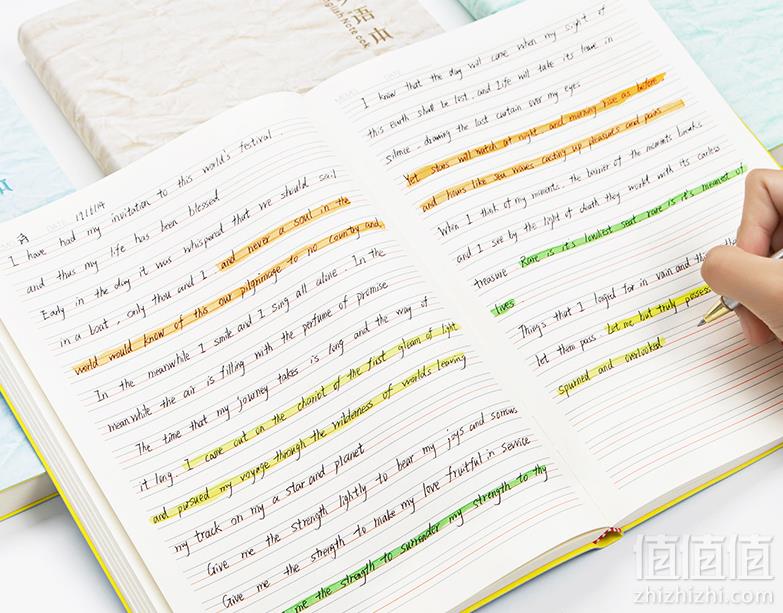 语本
DATE
I have had my invitation to this world's festival
and thus my life has been blessed
Early in the day it was whispered that we should sail
in a boat , only thou and I and never a soul in the
world would know of this our pilgrimage to no country and
In the meanwhile I smile and I sing all alone . In the
mean while the air is filling with the perfume of promise
The time that my journey takes is long and the way of
it long. I came out on the chariot of the first gleam of light
and pursued my voyage through the wilderness of worlds leaving
my track on my a star and planet
Give me the strength lightly to bear my joys and sorrows
Give me the strength to make my love fruitful in service
me the strength to surrender my strength to thy
I know that the day will come when my sight of
this Earth shall be lost , and Life will take its leave in
silence . drawing the last curtain over my eyes
Yet stars will watch at night , and morning rise as before
and hours like sea waves casting up pleasures and pains
When I think of my moments , the barrier of the moments breaks
and I see by the light of death thy world with its careless
treasure Rare is it's lowliest seat rare is it's meanest of
lives
Things that I longed for in vain and
let them pass . Let me but truly possess
spurned and overlooked
值值值
zhizhizhi.com